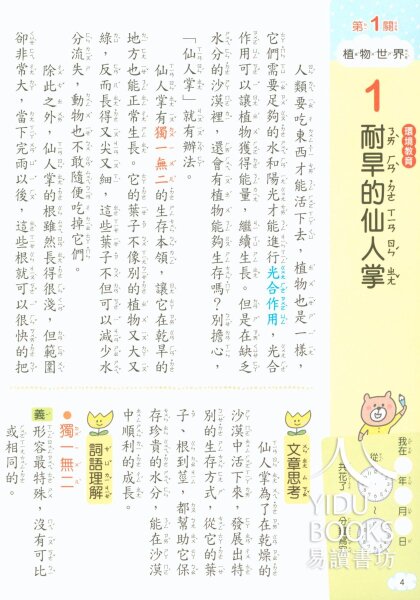 第1關
植物世界
1
環境教育
耐旱的仙人掌
人類要吃東西才能活下去，植物也是一樣，
它們需要足夠的水和陽光才能進行光合作用，光合
作用可以讓植物獲得能量，繼續生長。但是在缺乏
水分的沙漠裡，還會有植物能夠生存嗎？別擔心，
「仙人掌」就有辦法。
仙人掌有獨一無二的生存本領，讓它在乾旱的
地方也能正常生長。它的葉子不像別的植物又大又
綠，反而長得又尖又細，這些葉子不但可以減少水
分流失，動物也不敢隨便吃掉它們。
除此之外，仙人掌的根雖然長得很淺，但範圍
卻非常大，當下完雨以後，這些根就可以很快的把
我在　年　月　日
從　～
共花了　分
文章思考
仙人掌為了在乾燥的
沙漠中活下來，發展出特
別的生存方式，從它的葉
子、根到莖，都幫助它保
存珍貴的水分，能在沙漠
中順利的成長。
詞語理解
●獨一無二
義 形容最特殊，沒有可比
或相同的。
YIDU
BOOKS
易讀書坊
4